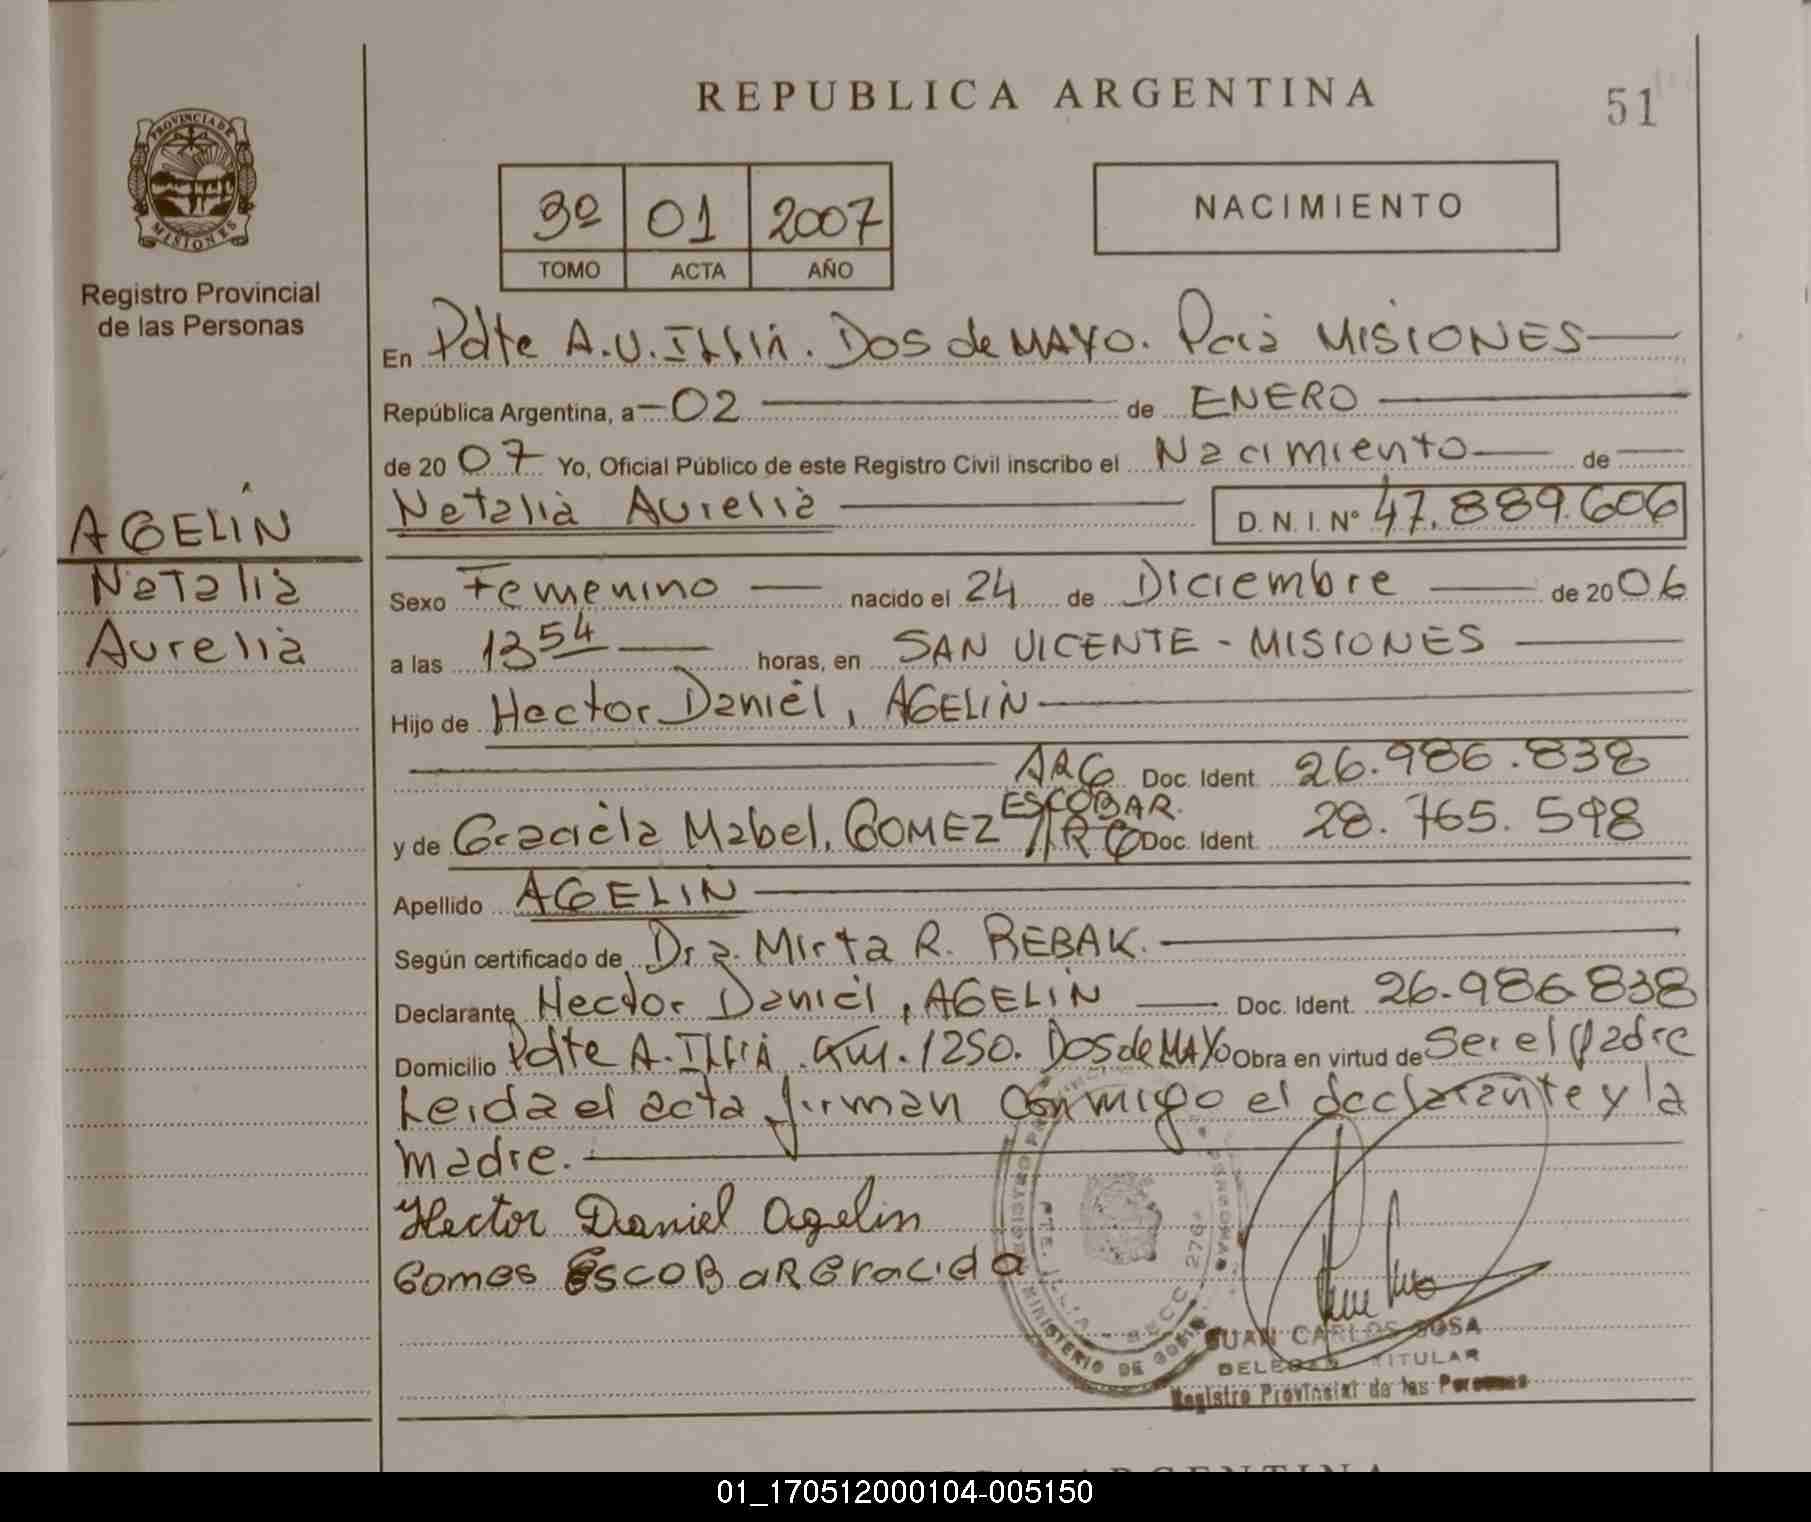 REPUBLICA ARGENTINA
51
PROVINCIA DE
MISIONES
Registro Provincial
de las Personas
3º 01 2007
TOMO ACTA AÑO
NACIMIENTO
En Pdte A.U. Illia. Dos de MAYO. Pcia MISIONES
República Argentina, a 02 de ENERO
de 20 07 Yo, Oficial Público de este Registro Civil inscribo el Nacimiento de
Natalia Aurelia D.N.I. Nº 47.889.606
AGELIN
Natalia
Aurelia
Sexo Femenino nacido el 24 de Diciembre de 20 06
a las 13 54 horas, en SAN VICENTE - MISIONES
Hijo de Hector Daniel, AGELIN
ARG Doc. Ident. 26.986.838
y de Graciela Mabel, GOMEZ ESCOBAR. ARG Doc. Ident. 28.765.598
Apellido AGELIN
Según certificado de Dra. Mirta R. REBAK.
Declarante Hector Daniel, AGELIN Doc. Ident. 26.986.838
Domicilio Pdte A. Illia Km. 1250. Dos de MAYO Obra en virtud de Ser el padre
Leida el acta firman conmigo el declarante y la
madre.
Hector Daniel Agelin
Gomes EscoBaR Gracida
MINISTERIO DE
PTE. ILLIA - SECC. 276
JUAN CARLOS SOSA
TITULAR
Registro Provincial de las Personas
ARGENTINA
01_170512000104-005150